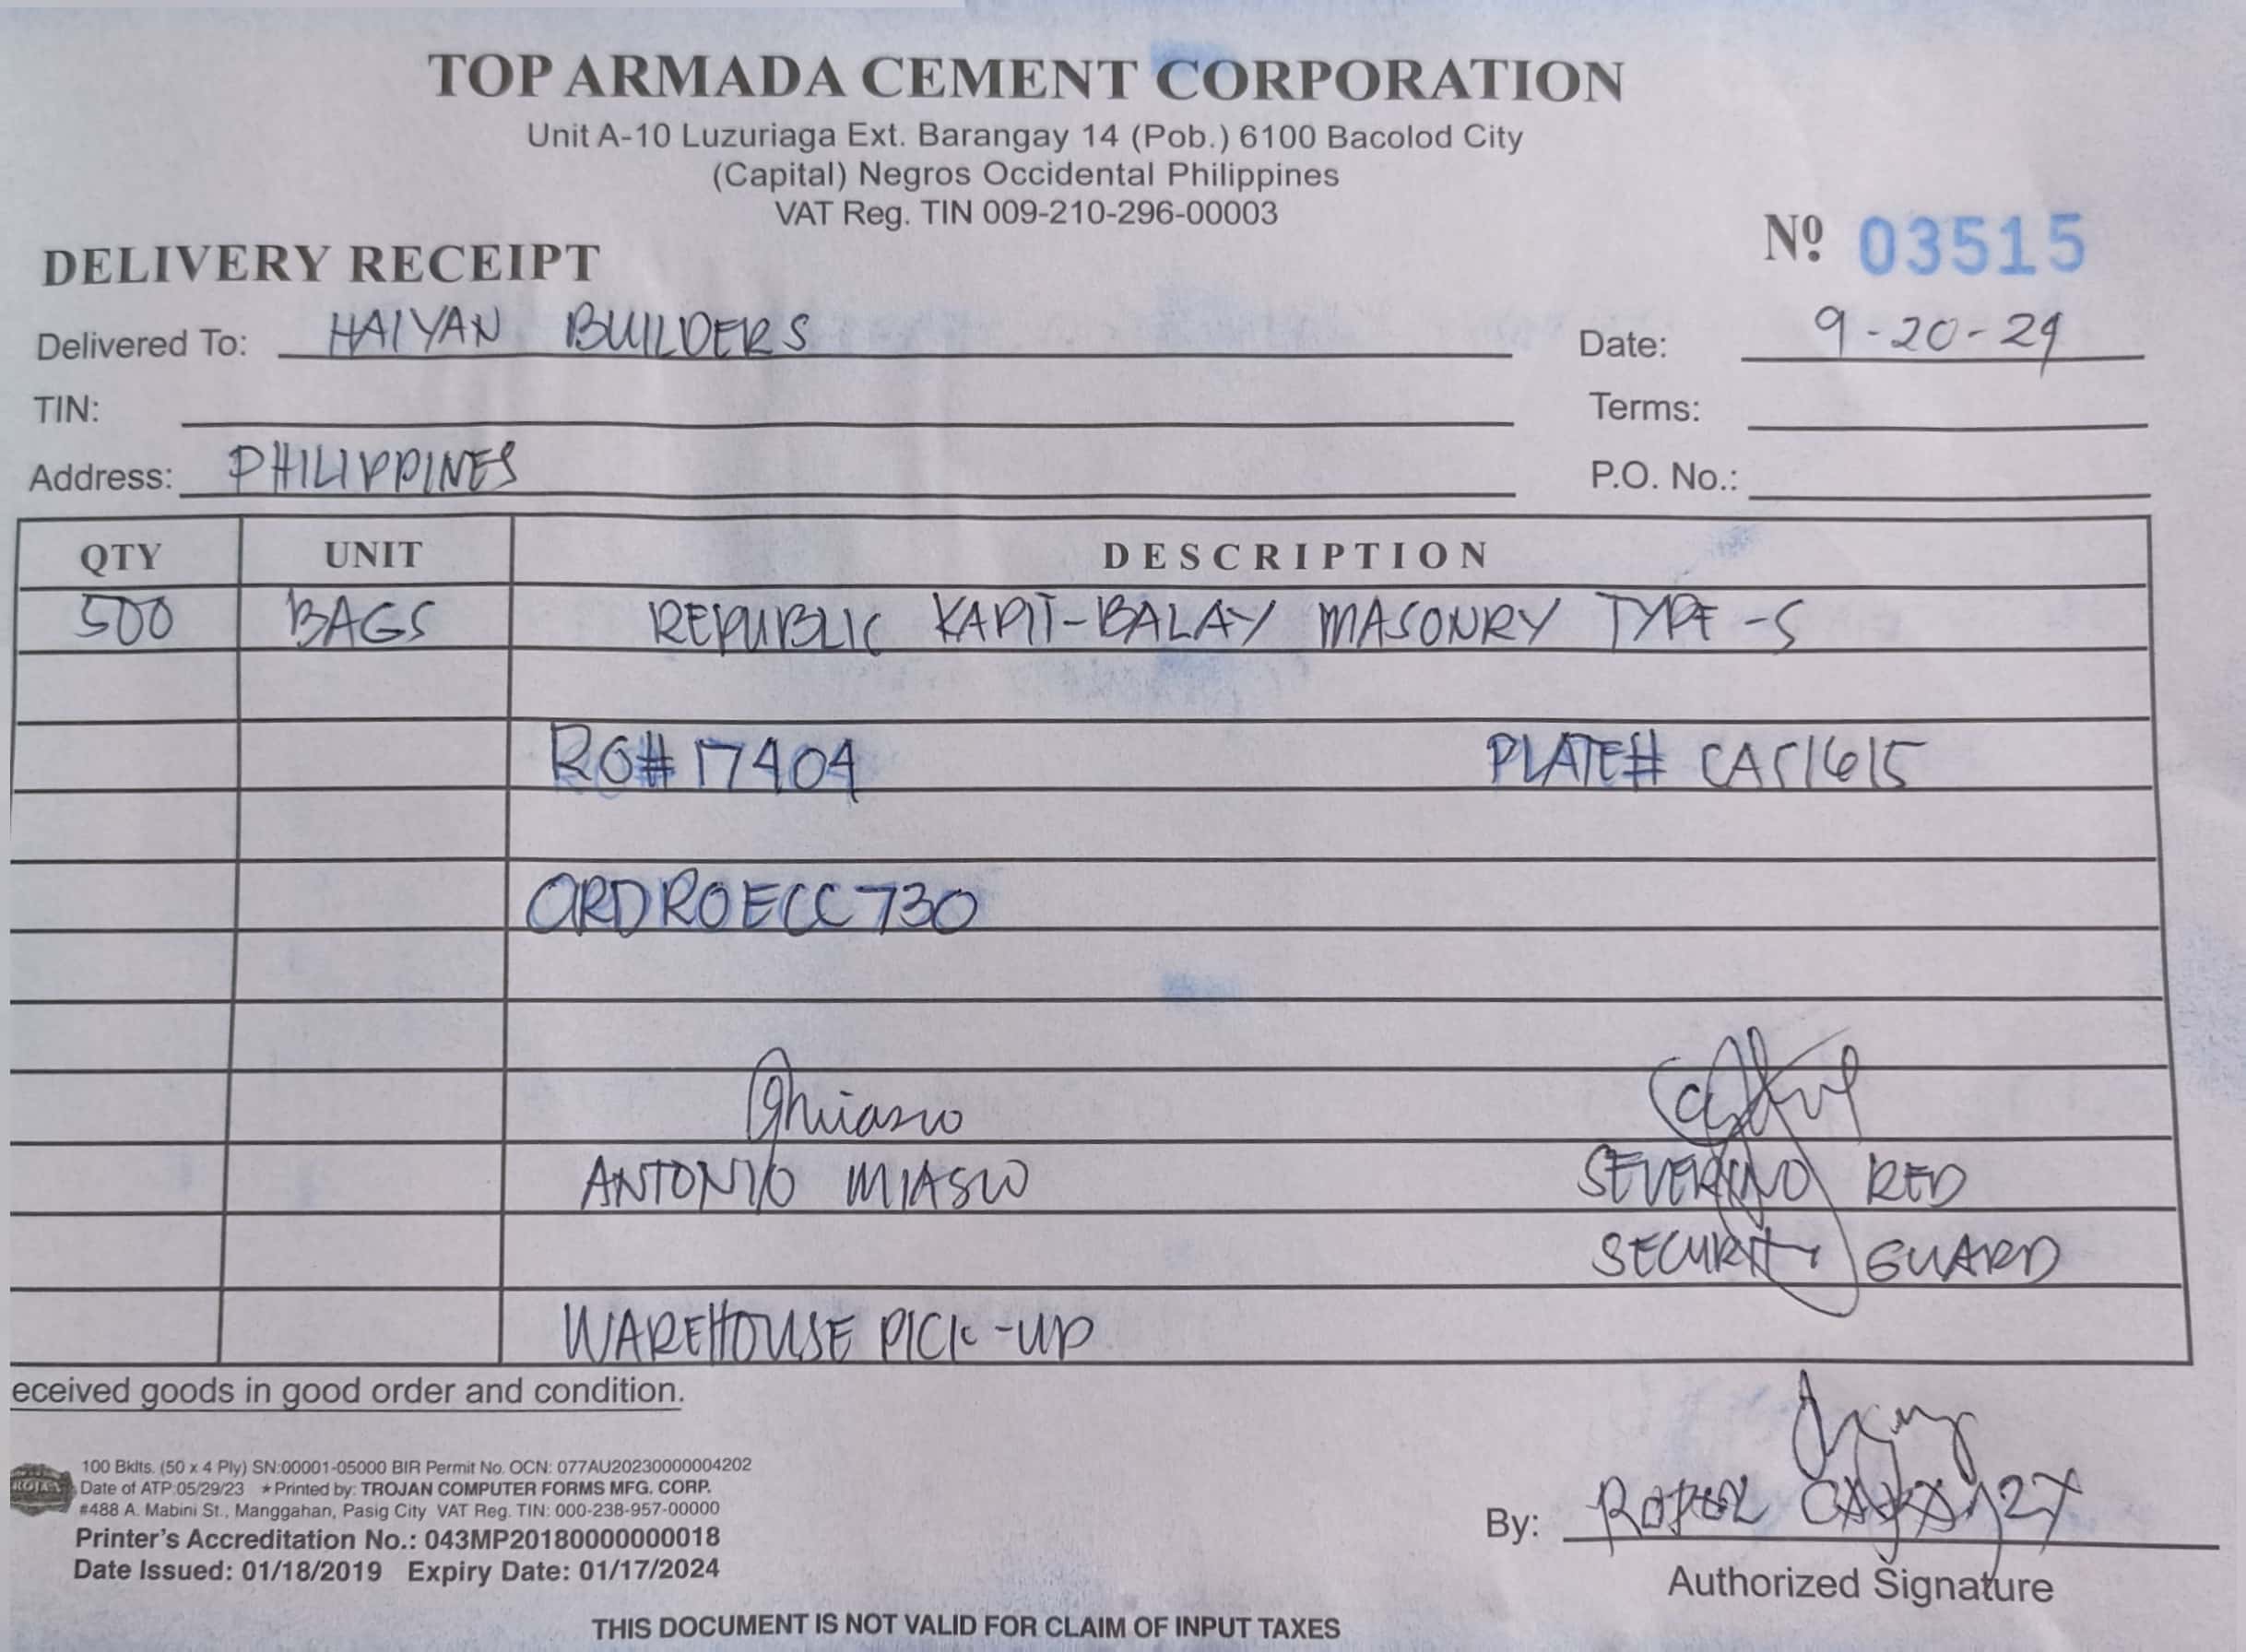 TOP ARMADA CEMENT CORPORATION
Unit A-10 Luzuriaga Ext. Barangay 14 (Pob.) 6100 Bacolod City
(Capital) Negros Occidental Philippines
VAT Reg. TIN 009-210-296-00003
Nº 03515
DELIVERY RECEIPT
Delivered To: HAIYAN BUILDERS Date: 9-20-24
TIN: Terms:
Address: PHILIPPINES P.O. No.:
QTY UNIT DESCRIPTION
500 BAGS REPUBLIC KAPIT-BALAY MASONRY TYPE-S
RO# 17404 PLATE# CAS1615
ORDROECC730
ANTONIO MIASCO SEVERINO RED
SECURITY GUARD
WAREHOUSE PICK-UP
eceived goods in good order and condition.
100 Bklts. (50 x 4 Ply) SN:00001-05000 BIR Permit No. OCN: 077AU20230000004202
Date of ATP:05/29/23 ★Printed by: TROJAN COMPUTER FORMS MFG. CORP.
#488 A. Mabini St., Manggahan, Pasig City VAT Reg. TIN: 000-238-957-00000
Printer's Accreditation No.: 043MP20180000000018
Date Issued: 01/18/2019 Expiry Date: 01/17/2024
By:
Authorized Signature
THIS DOCUMENT IS NOT VALID FOR CLAIM OF INPUT TAXES